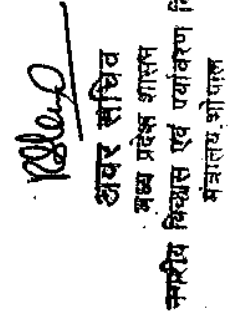 अवर सचिव
मध्य प्रदेश शासन
नगरीय विकास एवं पर्यावरण वि
मंत्रालय, भोपाल